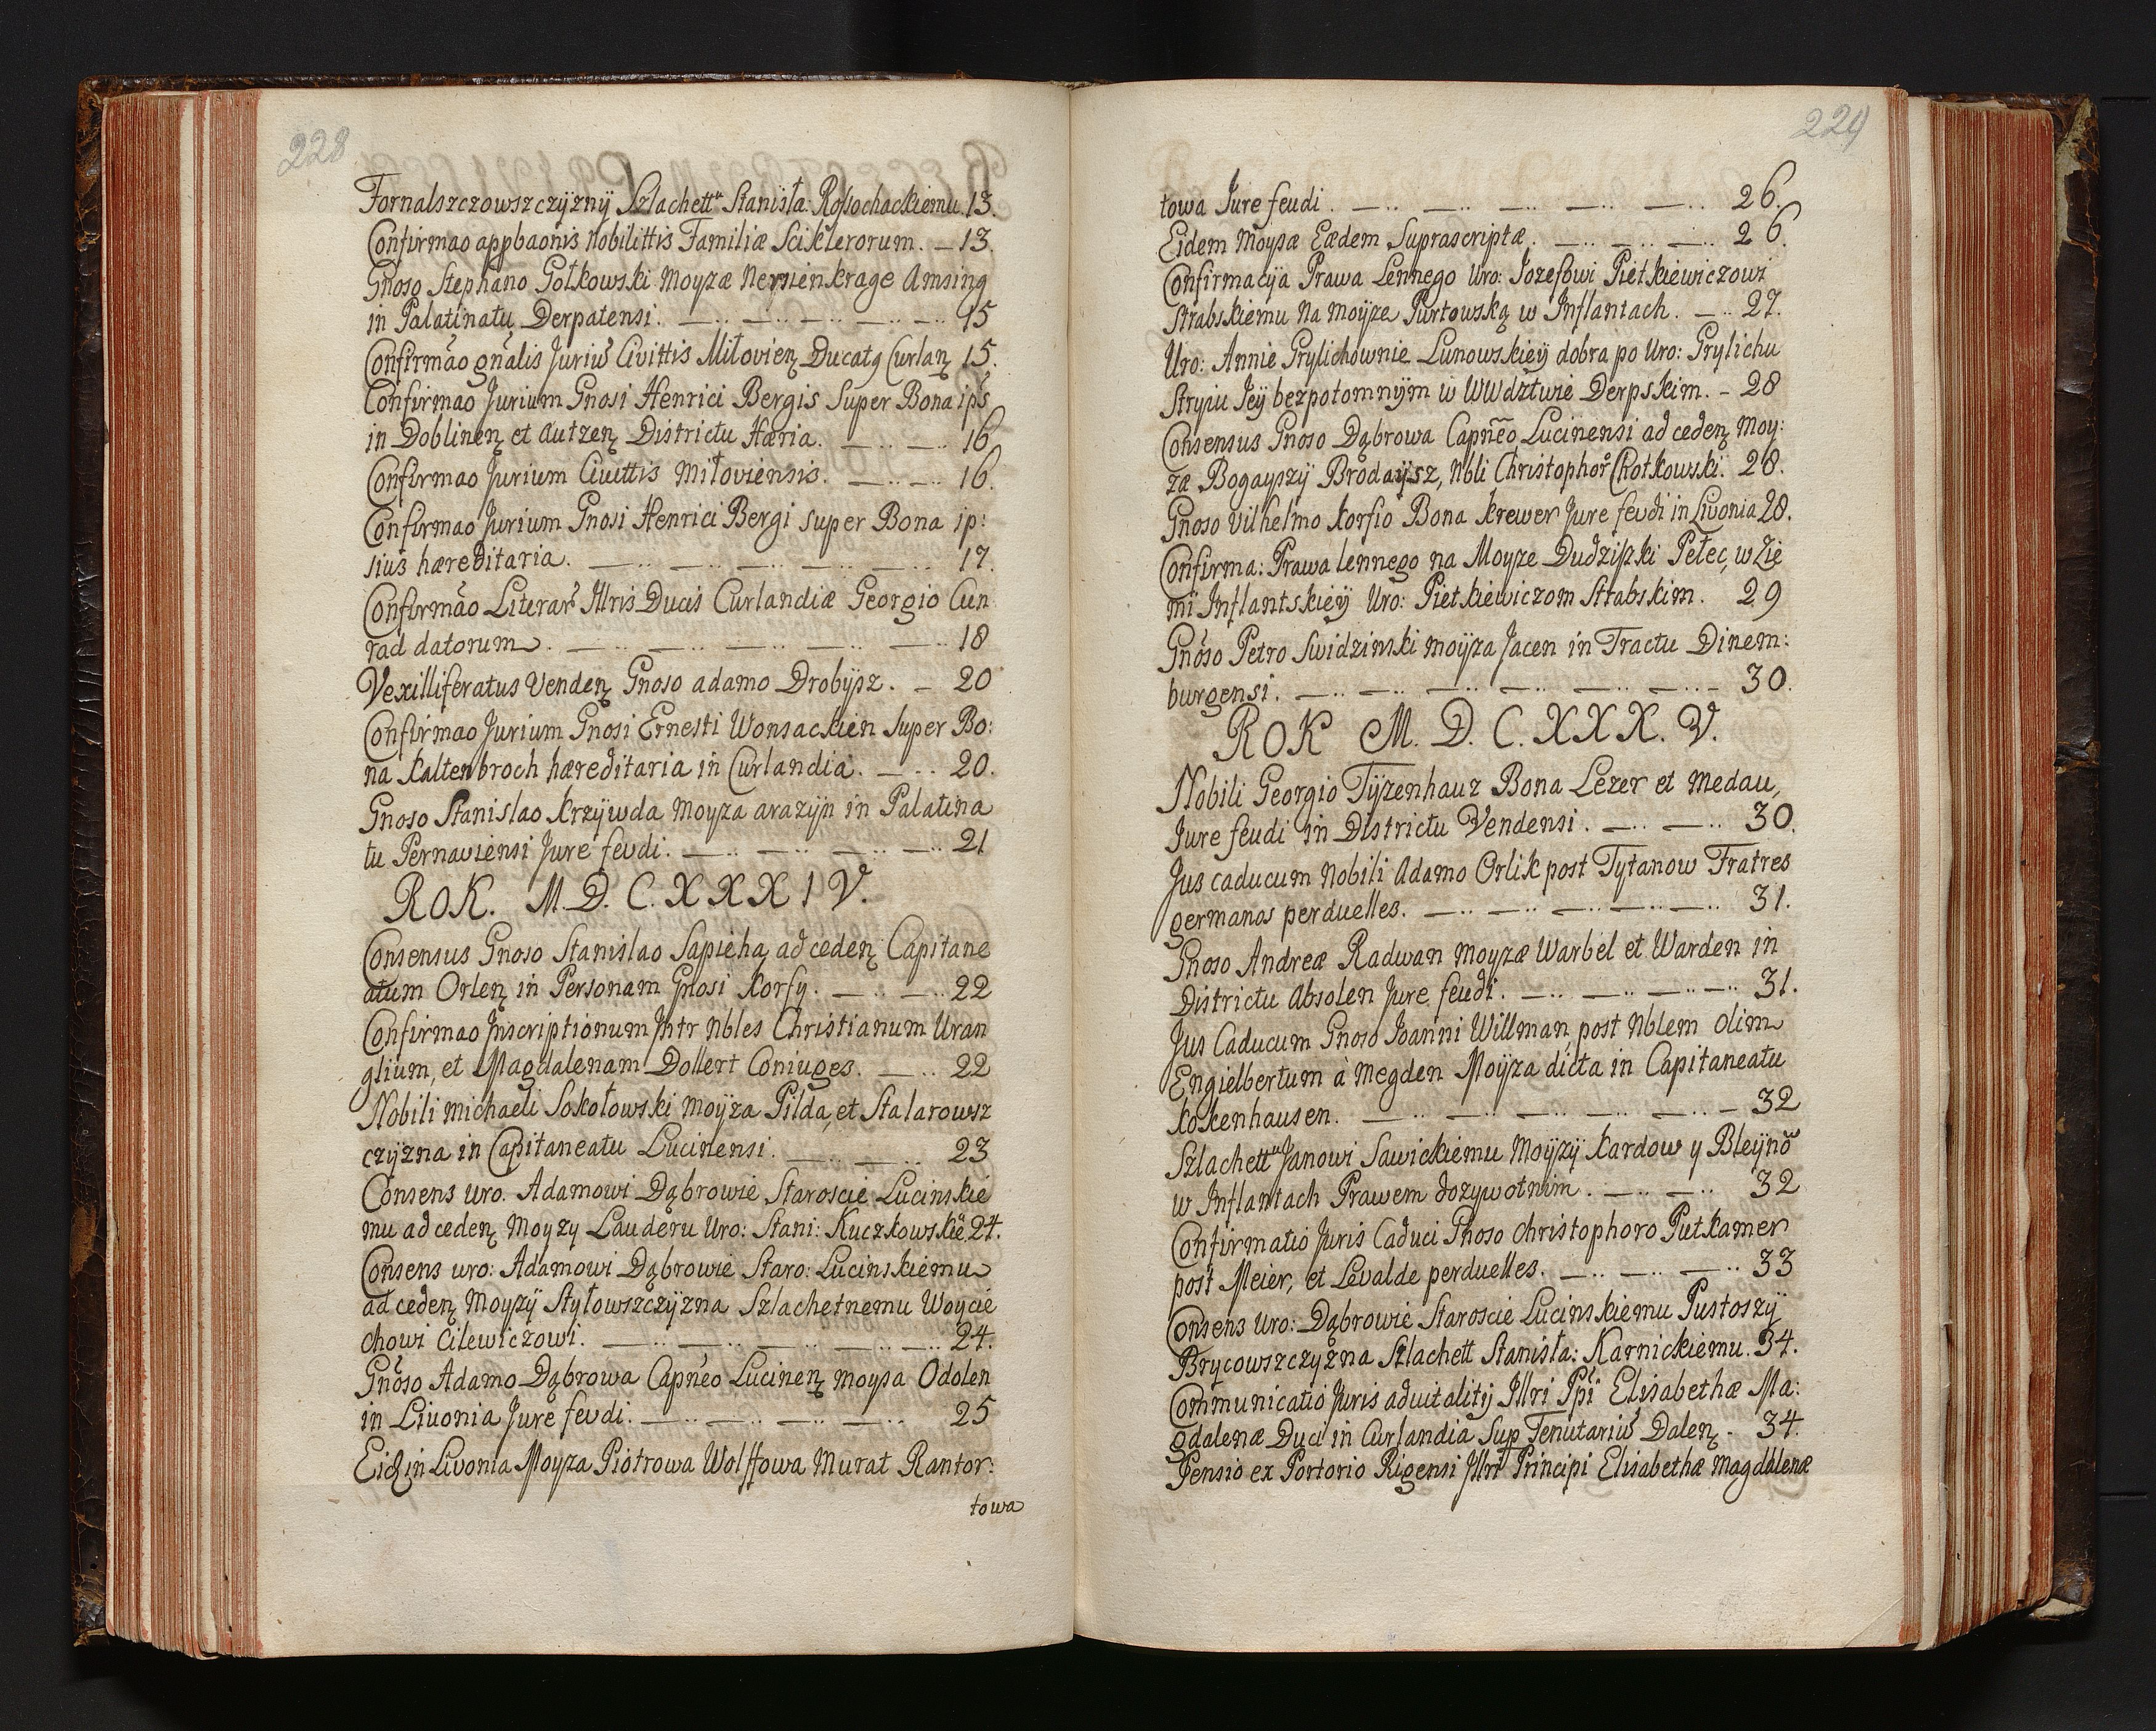 228
Fornalszczowszczyzny Szlachett<sup>u</sup> Stanisła: Rossochackiemu. 13.
Confirmao appbaonis Nobilittis Familiæ Sciklerorum. — 13.
Gnoso Stephano Gotkowski Moyzæ Nernienkrage Amsing
in Palatinatu Derpatensi. — 15
Confirmão gnãlis Juriũ Civittis Mitovienȝ Ducatq Curlanȝ 15.
Confirmao Jurium Gnosi Henrici Bergis Super Bona ip̃s
in Doblinenȝ et Autzenȝ Districtu Hæria. — 16
Confirmao Jurium Civittis Mitoviensis. — 16.
Confirmao Jurium Gnosi Henrici Bergi super Bona ip:
siũs hæreditaria. — 17.
Confirmão Literar̃ Illris Ducis Curlandiæ Georgio Cun
rad datorum. — 18
Vexilliferatus Vendenȝ Gnoso Adamo Drobysz. — 20
Confirmao Jurium Gnosi Ernesti Wonsackien Super Bo:
na Kaltenbroch hæreditaria in Curlandia. — 20.
Gnoso Stanislao Krzywda Moyza Arazyn in Palatina
tu Pernaviensi Jure feudi. — 21
ROK. M. D. C. XXXIV.
Consensus Gnoso Stanislao Sapieha, ad cedenȝ Capitane
atum Orlenȝ in Personam Gnosi Korfy. — 22
Confirmao Inscriptionum Intr Nbles Christianum Uran
glium, et Magdalenam Dollert Coniuges. — 22
Nobili Michaeli Sokołowski Moÿza Pilda, et Stalarowsz
czyzna in Capitaneatu Lucinensi. — 23
Consens Uro. Adamowi Dąbrowie Staroscie Lucinskie
mu ad cedenȝ Moyzy Lauderu Uro: Stani: Kuczkowskiẽ 24.
Consens uro: Adamowi Dąbrowie Staro: Lucinskiemu
ad cedenȝ Moyzÿ Styłowszczÿzna Szlachetnemu Woycie
chowi Cilewiczowi. — 24.
Gnõso Adamo Dąbrowa Capnẽo Lucinenȝ Moysa Odolen
in Livonia Jure feudi. — 25
Eidȝ in Livonia Moyza Piotrowa Wolffowa Murat Rantor:
towa
229
towa Jure feudi. — 26.
Eidem Moysæ Eædem Suprascriptæ. — 26.
Confirmacÿa Prawa Lennego Uro: Jozefowi Pietkiewiczowi
Strabskiemu Na Moÿze Purtowską w Inflantach. — 27.
Uro: Annie Grylichownie Lunowskieÿ dobra po Uro: Grylichu
Stryiu Jeÿ bezpotomnÿm w WWdztwie Derpskim. — 28
Consensus Gnoso Dąbrowa Capnẽo Lucinensi ad cedenȝ Moy:
zæ Bogayszÿ Brodaÿsz, Nbli Christophor̃ Chotkowski. 28.
Gnoso Vilhelmo Korfio Bona Krewer Jure feudi in Livonia 28.
Confirma: Prawa lennego na Moyze Dudziszki Pełec, w Zie
mi Inflantskieÿ Uro: Pietkiewiczom Strabskim. 29
Gnõso Petro Swidzinski Moÿza Jacen in Tractu Dinem:
burgensi. — 30.
ROK M. D. C. XXX. V.
Nobili Georgio Tÿzenhauz Bona Lezer et Medau,
Jure feudi in Districtu Vendensi. — 30.
Jus caducum Nobili Adamo Orlik post Tytanow Fratres
germanos perduelles. — 31.
Gnoso Andreæ Radwan Moyzæ Warbel et Warden in
Districtu Absolen Jure feudi. — 31.
Jus Caducum Gnoso Joanni Willman, post Nblem olim
Engielbertum à Megden Moÿza dicta in Capitaneatu
Kokenhausen. — 32
Szlachett<sup>u</sup> Janowi Sawickiemu Moÿzÿ Kardow y Bleÿnõ<sup>w</sup>
w Inflantach Prawem dozywotnim. — 32
Confirmatio Juris Caduci Gnoso Christophoro Putkamer
post Meier, et Levalde perduelles. — 33
Consens Uro: Dąbrowie Staroscie Lucinskiemu Pustoszÿ
Brycowszczyzna Szlachett Stanisła: Karnickiemu. 34.
Communicatio Juris advitalitÿ Illri Ppĩ Elisabethæ Ma:
gdalenæ Duci in Curlandia Sup Tenutariũ Dalenȝ. 34.
Pensio ex Portorio Rigensi Illri Principi Elisabethæ Magdalenæ